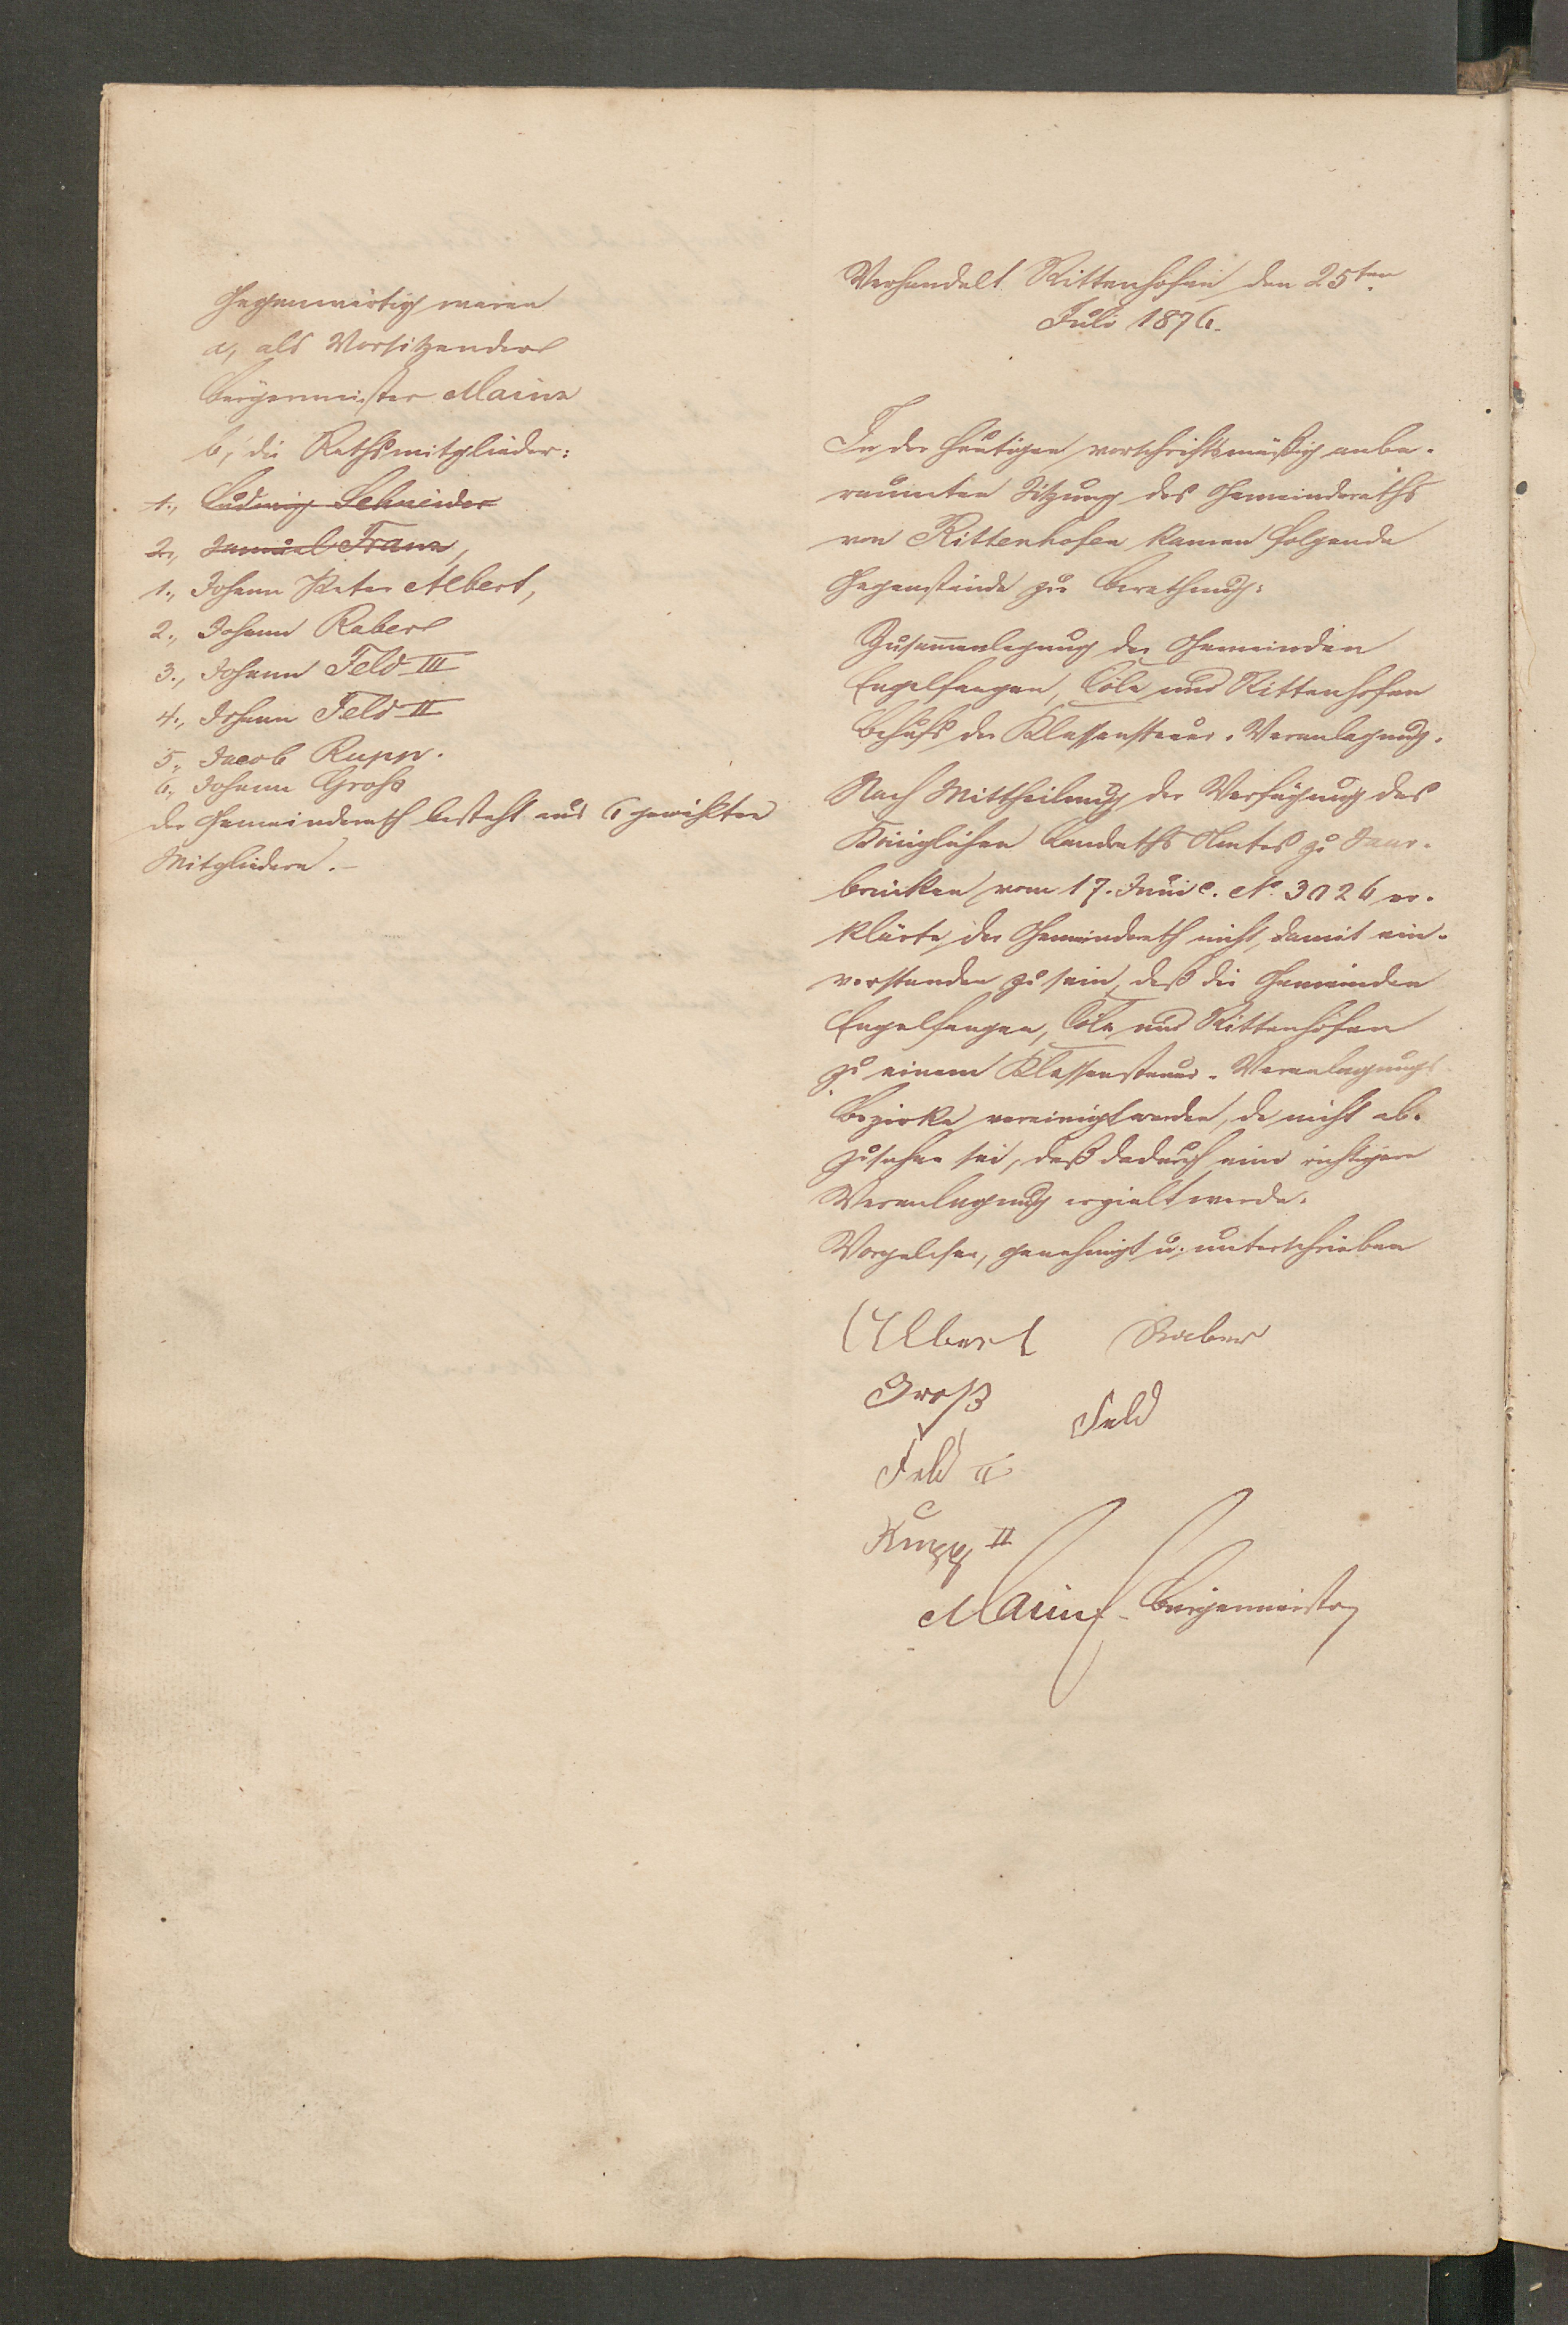 Gegenwärtig waren
a, als Vorsitzender
Bürgermeister Maine
b, die Rathsmitglieder:
1., Ludwig Schneider
2., Samuel Franz,
1., Johann Peter Albert,
2., Johann Raber
3., Johann Feld III
4., Johann Feld II
5., Jacob Rupp.
6., Johann Groß
der Gemeinderath besteht aus 6 gewählten
Mitgliedern.–
Verhandelt Rittenhofen den 25ten
Juli 1876.
In der heutigen vorschriftsmäßig anbe-
raumten Sitzung des Gemeinderaths
von Rittenhofen kamen folgende
Gegenstände zur Berathung:
Zusammenlegung der Gemeinden
Engelfangen, Cöln und Rittenhofen
behufs der Klassensteuer-Veranlagung.
Nach Mittheilung der Verfügung des
Königlichen Landraths Amtes zu Saar-
brücken vom 17. Juni c. No 3026 er-
klärte der Gemeinderath nicht damit ein-
verstanden zu sein, daß die Gemeinden
Engelfangen, Cöln und Rittenhofen
zu einem Klassensteuer-Veranlagungs
Bezirke vereinigt werden, da nicht ab-
zusehen sei, daß dadurch eine richtigere
Veranlagung erzielt werde.
Vorgelesen, genehmigt u. unterschrieben
Albert Raber
Groß
Feld
Feld II
Rupp II
Maine Bürgermeister